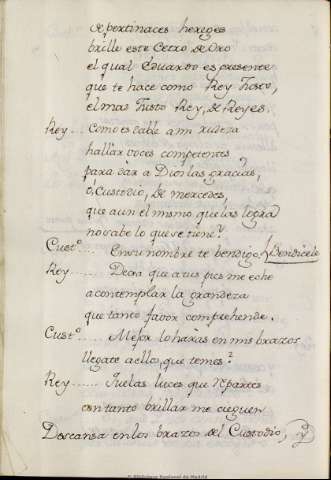 de pertinaces hereges
brille este Cetro de Oro
el qual Eduardo es presente
que te hace como Rey Justo,
el mas Justo Rey, de Reyes.
Rey... Como es dable a mi rudeza
hallar voces competentes
para dar a Dios las gracias,
ó, Custodio, de mercedes,
que aun el mismo que las logra
no sabe lo que se tiene?
Custo.... En su nombre te bendigo, Bendicele
Rey.... Deja que a tus pies me eche
a contemplar la grandeza
que tanto favor comprehende.
Custo.... Mejor lo harás en mis brazos
llegate a ellos, que temes?
Rey..... Que las luces que repartes
con tanto brillar me cieguen
Descansa en los brazos del Custodio,
© Biblioteca Nacional de España